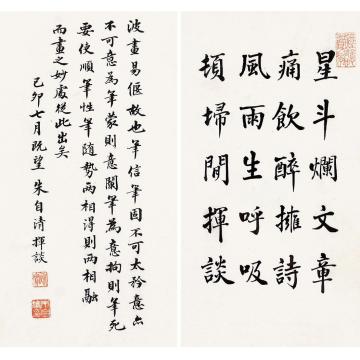 星斗爛文章
痛飲醉擁詩
風雨生呼吸
埽閒揮談
波畫易偃故也筆信筆固不可太矜意亦
不可意為筆蒙則意闌筆為意拘則筆死
要使順筆性筆隨勢兩相得則兩相融
而畫之妙處從此出矣
己卯七月既望 朱自清揮談